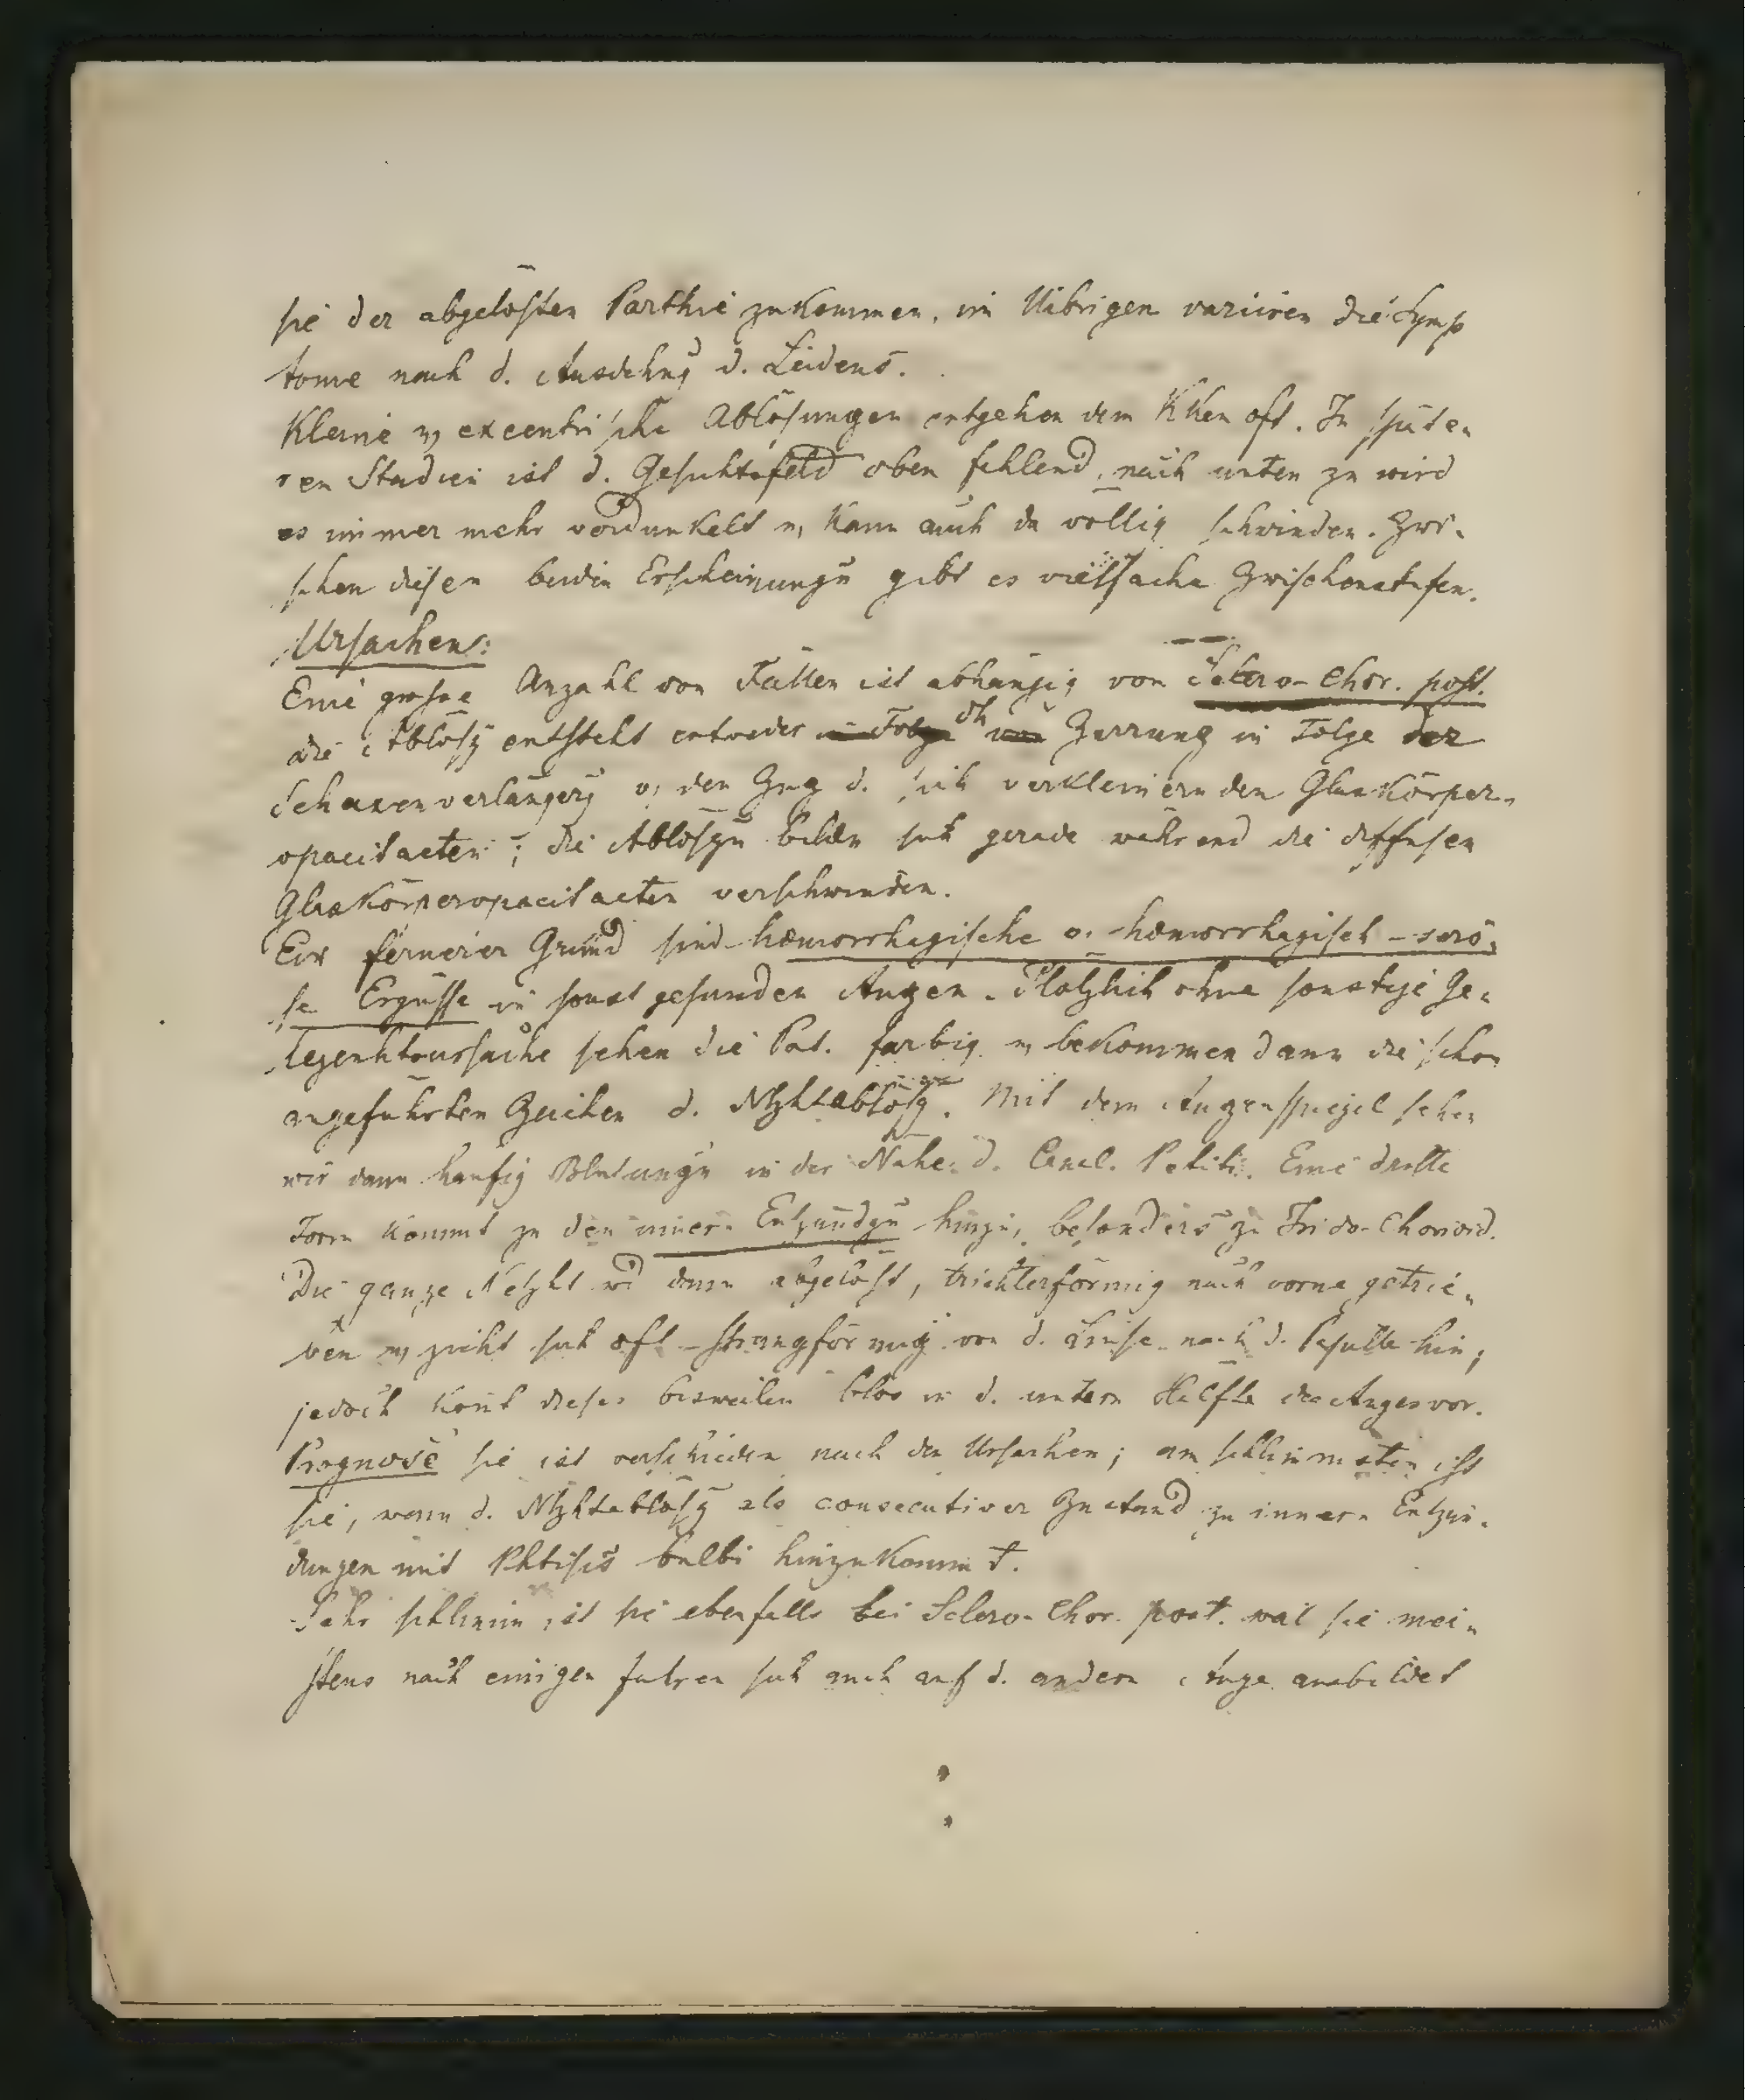 sie der abgelösten Parthie zukommen, im Uibrigen variiren die Symp
tome nach d. Ausdehng d. Leidens.
Kleine u, excentrische Ablösungen entgehen dem KKen oft. In späte-
ren Stadien ist d. Gesichtsfeld oben fehlend, nach unten zu wird
es immer mehr verdunkelt u, kann auch da völlig schwinden. Zwi-
schen diesen beiden Erscheinungn gibt es vielfache Zwischenstufen.
Ursachen:
Eine grosse Anzahl von Fällen ist abhängig von Sclero-Chor. post.
die Ablösg entsteht entweder in Folge dh von Zerrung in Folge der
Sehaxenverlängerg o, den Zug d. sich verkleinernden Glaskörper-
opacitaeten; die Ablösgn bilden sich gerade während die diffusen
Glaskörperopacitaeten verschwinden.
Ein fernerer Grund sind haemorrhagische o. haemorrhagisch-serö-
se Ergüsse in sonst gesunden Augen. Plötzlich ohne sonstige Ge-
legenhtsursache sehen die Pat. farbig u, bekommen dann die schon
angeführten Zeichen d. Ntzhtablösg. Mit dem Augenspiegel sehen
wir dann häufig Blutungn in der Nähe d. Canal. Petiti. Eine dritte
Form kommt zu den innern Entzündgn hinzu, besonders zu Irido-Chorioid.
Die ganze Netzht wd dann abgelöst, trichterförmig nach vorne getrie-
ben u, zieht sich oft strangförmig von d. Linse nach d. Papille hin;
jedoch komt dieses bisweilen blos in d. untern Hälfte des Auges vor.
Prognose sie ist verschieden nach den Ursachen; am schlimmsten ist
sie, wenn d. Ntzhtablösg als consecutiver Zustand zu innern Entzün-
dungen mit Phtisis bulbi hinzukommt.
Sehr schlimm ist sie ebenfalls bei Sclero-Chor. post. weil sie mei-
stens nach einigen Jahren sich auch auf d. andern Auge ausbildet